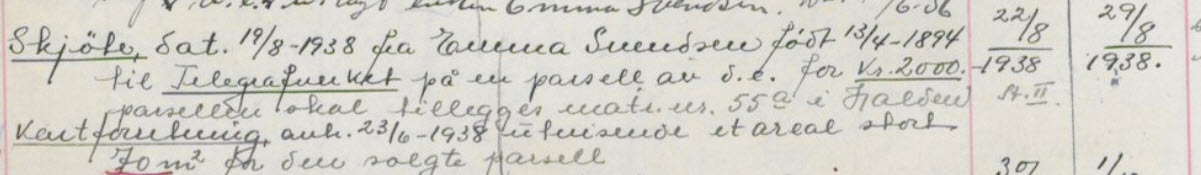 enken Emma Svendsen. 16-36
Skjöte, dat. 19/8-1938 fra Emma Svendsen født 13/4-1894 22/8 29/8
til Telegrafverket på en parsell av d.e. for Kr. 2000.- 1938 1938.
parsellen skal tillegges matr. nr. 55a i Halden St. II.
Kartforretning, avh. 23/6-1938 utvisende et areal stort
70 m² for den solgte parsell 30/ 1/